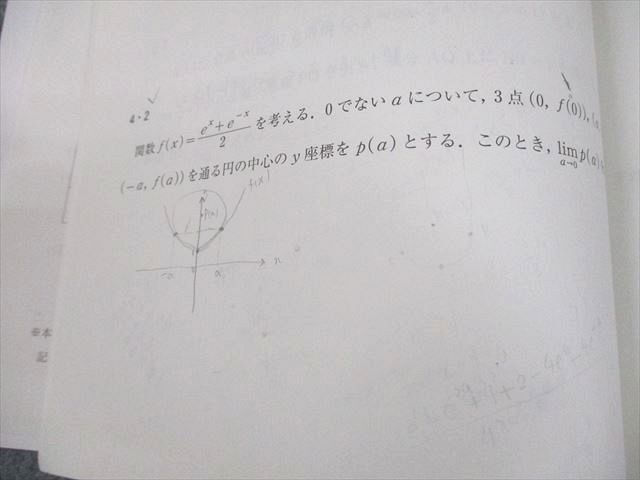 4・2
関数 f(x) = \frac{e^x + e^{-x}}{2} を考える．0でない a について，3点 (0, f(0)), (a
(-a, f(a)) を通る円の中心の y 座標を p(a) とする．このとき，\lim_{a→0} p(a)
f(x)
p(a)
-a 0 a x
※本
記